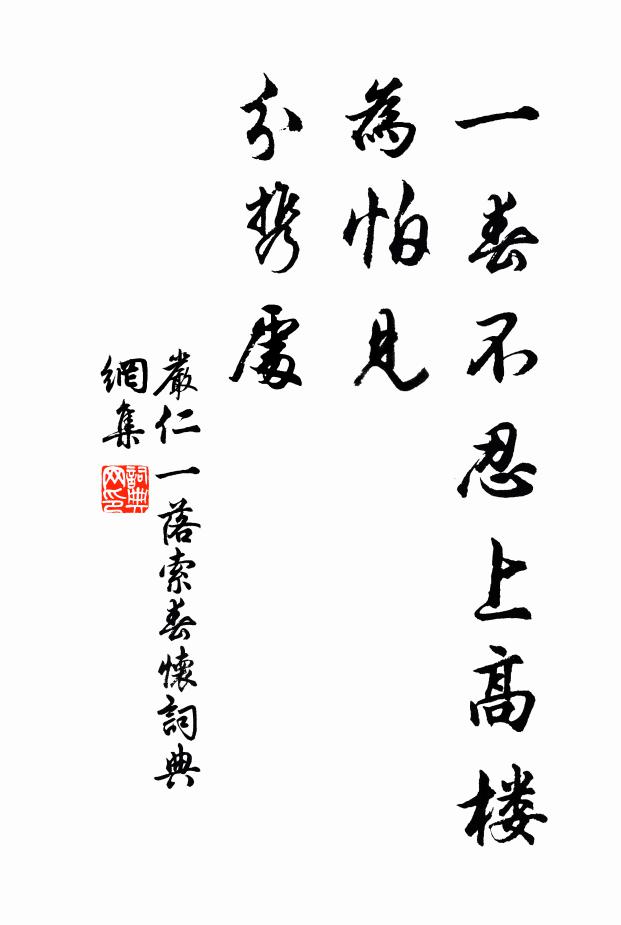 一春不忍上高楼
為怕見
分携處
嚴仁一落索春懷詞典
網集
詞典網印